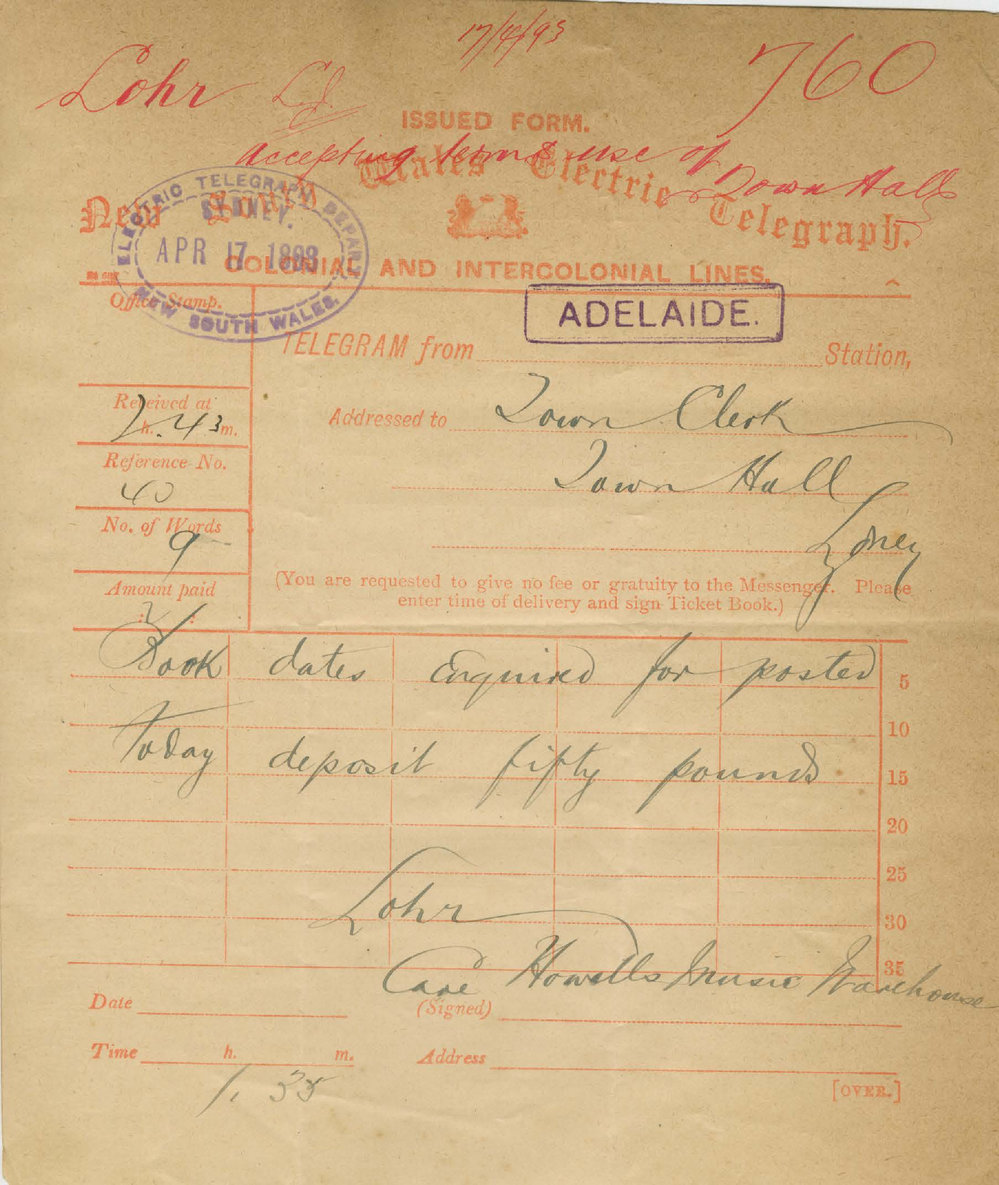 17/4/93
Lohr 760
ISSUED FORM.
Accepting terms use of Town Hall
New South Wales Electric Telegraph.
ELECTRIC TELEGRAPH DEPART
SYDNEY.
APR 17 1893
NEW SOUTH WALES.
COLONIAL AND INTERCOLONIAL LINES.
Office Stamp.
ADELAIDE.
TELEGRAM from Station,
Received at
h. 43 m.
Addressed to Town Clerk
Reference No.
40
Town Hall
No. of Words
9
Sydney
Amount paid
(You are requested to give no fee or gratuity to the Messenger. Please
enter time of delivery and sign Ticket Book.)
Book dates enquired for posted 5
10
today deposit fifty pounds 15
20
25
Lohr 30
35
Care Howells Music Warehouse
Date (Signed)
Time h. m. Address
1.35
[OVER.]